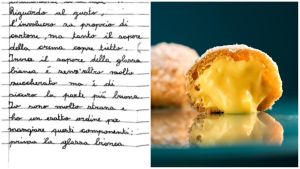 Riguardo al gusto,
l'involucro sa proprio di
cartone, ma tanto il sapore
della crema copre tutto.
Invece il sapore della glassa
bianca è senz'altro molto
zuccherato ma è di
sicuro la parte più buona.
Io sono molto strana e
ho un esatto ordine per
mangiare questi componenti:
prima la glassa bianca